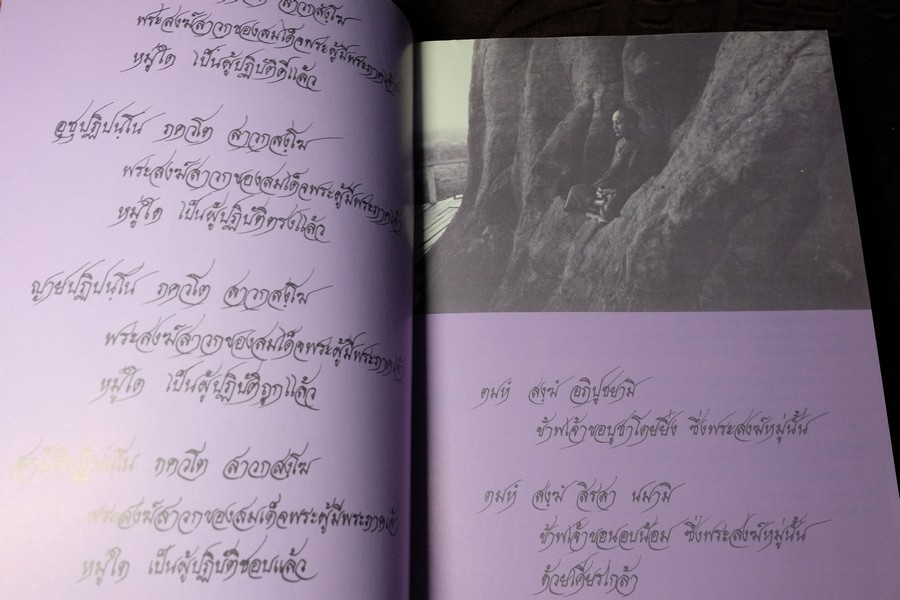 สาวกสงฺโฆ
พระสงฆ์สาวกของสมเด็จพระผู้มีพระภาคเจ้า
หมู่ใด เป็นผู้ปฏิบัติดีแล้ว
อุชุปฏิปนฺโน ภควโต สาวกสงฺโฆ
พระสงฆ์สาวกของสมเด็จพระผู้มีพระภาคเจ้า
หมู่ใด เป็นผู้ปฏิบัติตรงแล้ว
ญายปฏิปนฺโน ภควโต สาวกสงฺโฆ
พระสงฆ์สาวกของสมเด็จพระผู้มีพระภาคเจ้า
หมู่ใด เป็นผู้ปฏิบัติถูกแล้ว
สามีจิปฏิปนฺโน ภควโต สาวกสงฺโฆ
พระสงฆ์สาวกของสมเด็จพระผู้มีพระภาคเจ้า
หมู่ใด เป็นผู้ปฏิบัติชอบแล้ว
ตมหํ สงฺฆํ อภิปูชยามิ
ข้าพเจ้าขอบูชาโดยยิ่ง ซึ่งพระสงฆ์หมู่นั้น
ตมหํ สงฺฆํ สิรสา นมามิ
ข้าพเจ้าขอนอบน้อม ซึ่งพระสงฆ์หมู่นั้น
ด้วยเศียรเกล้า